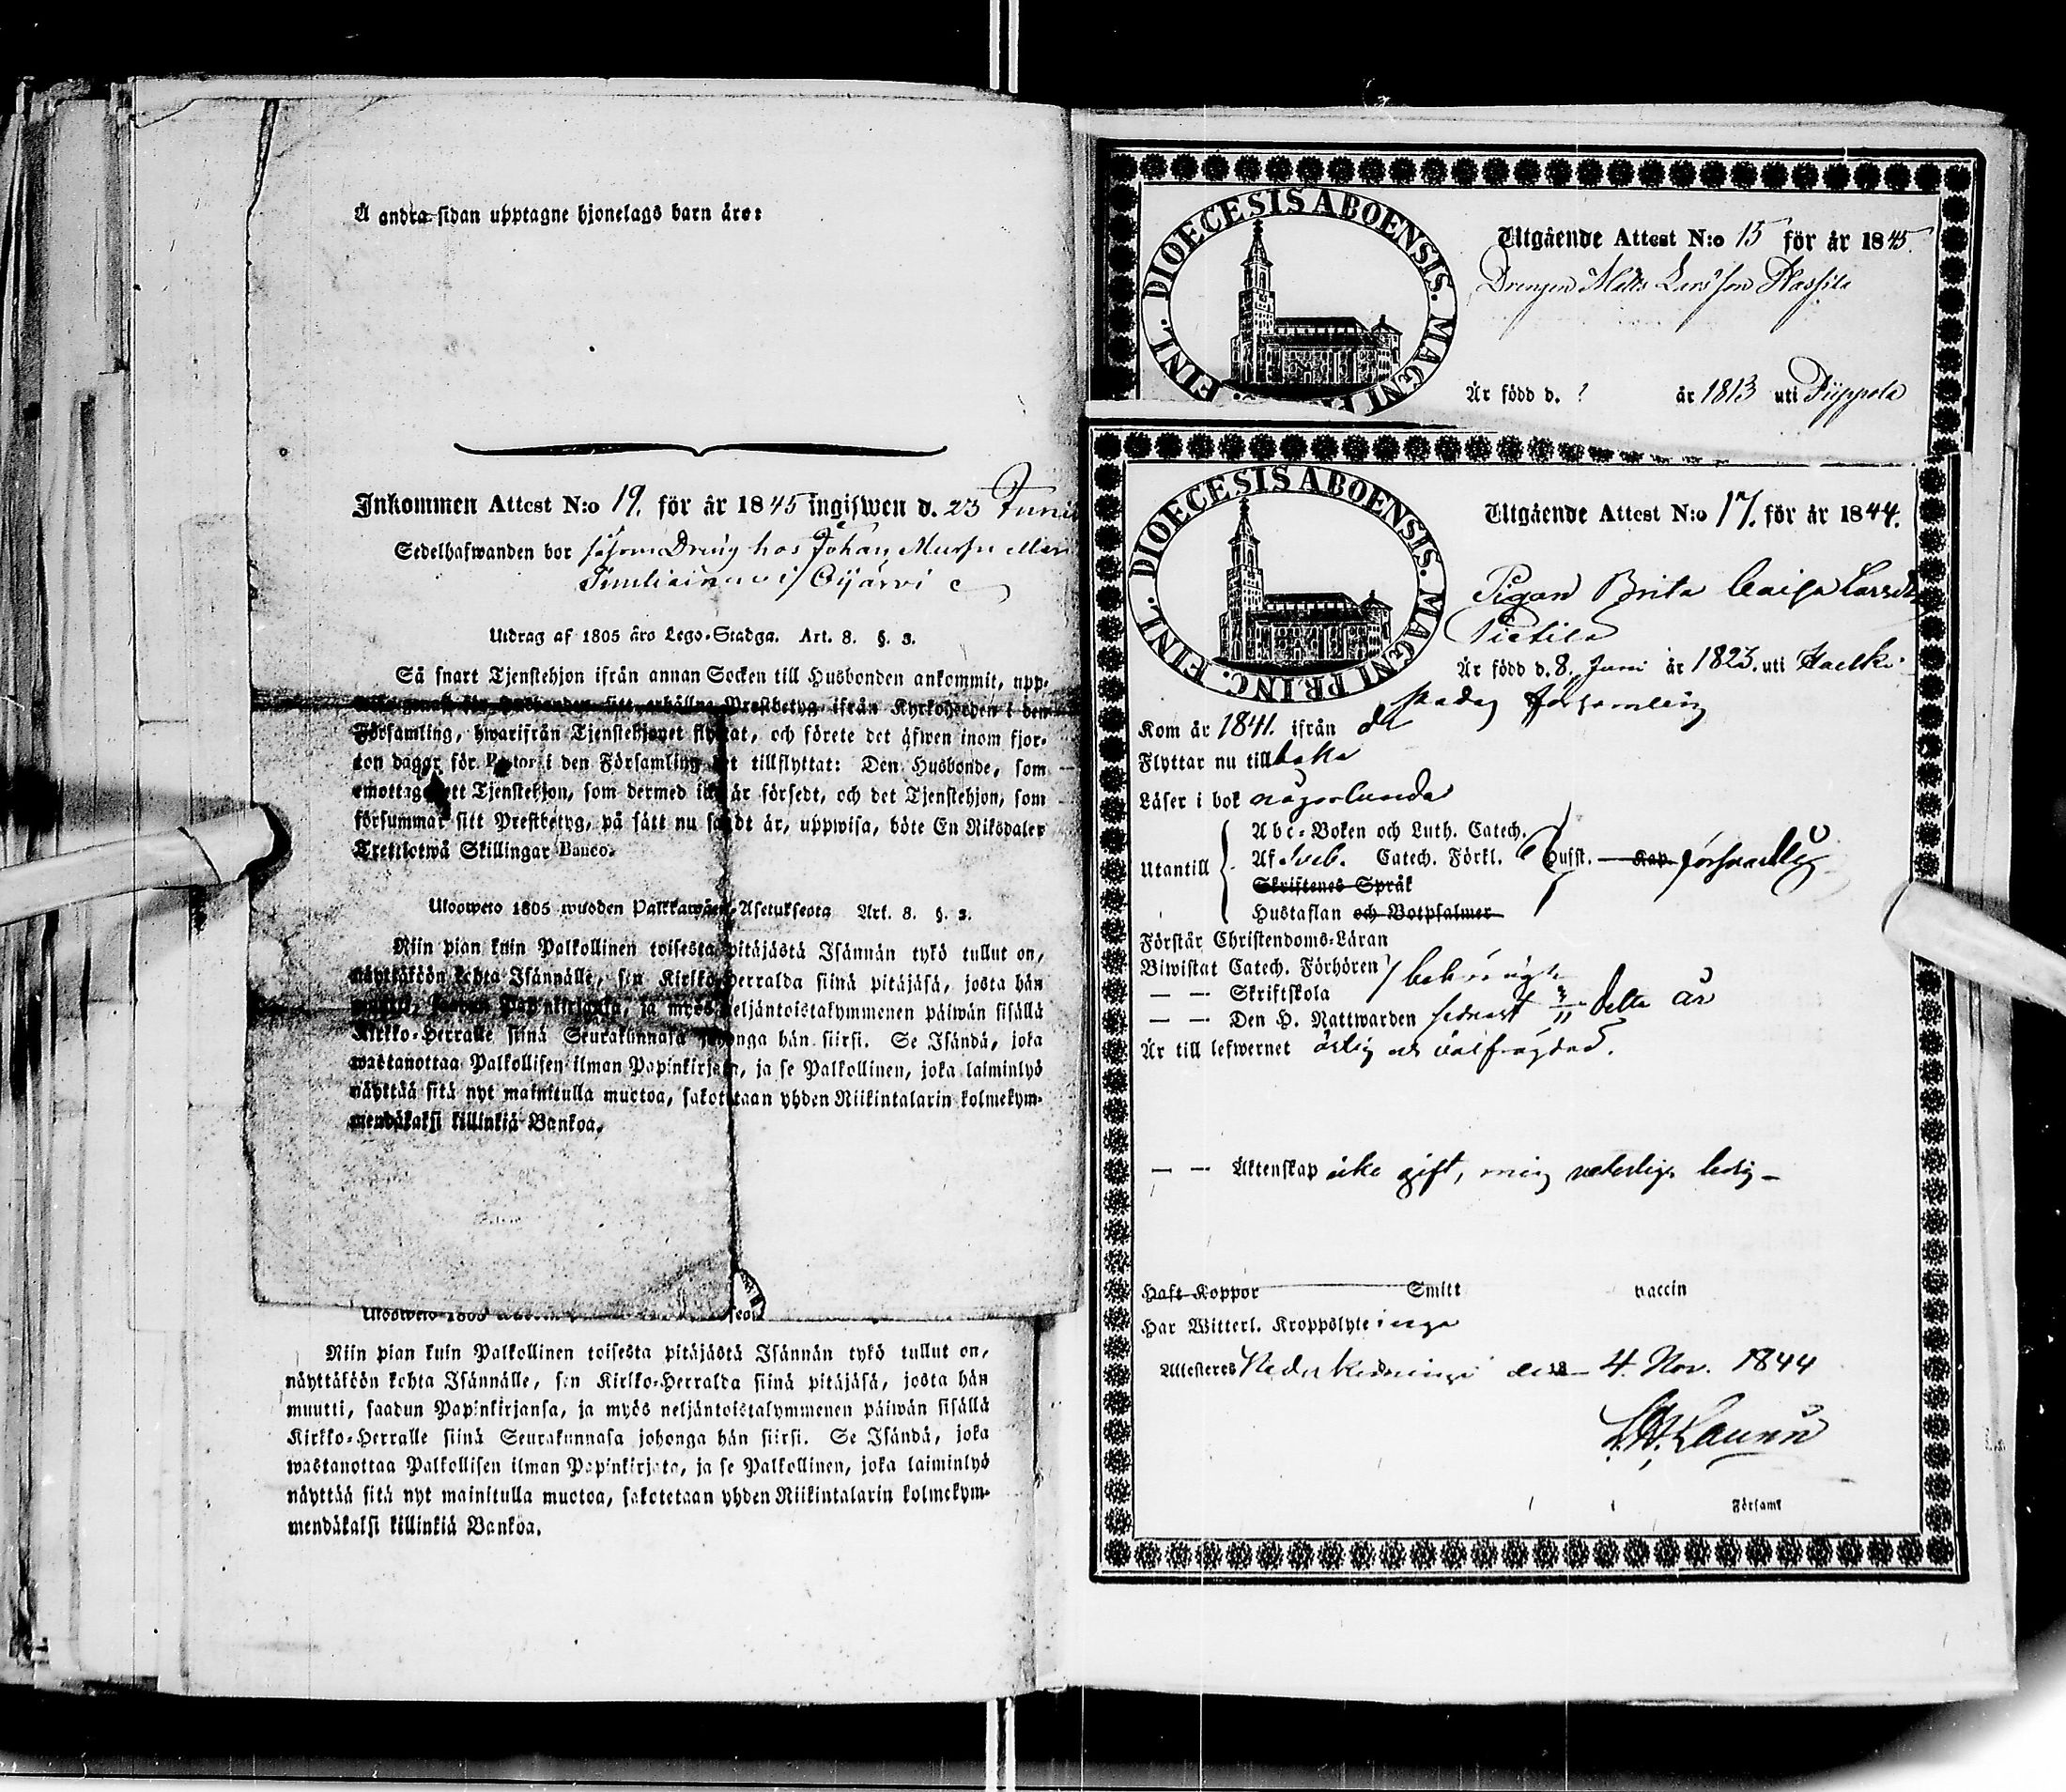 Å andra sidan upptagne hjonelags barn äro:
Inkommen Attest N:o 19. för år 1845 ingifwen d. 23 Juni
Sedelhafwanden bor såsom Dreng hos Johan
Utdrag af 1805 års Lego-Stadga. Art. 8. §. 3.
Så snart Tjenstehjon ifrån annan Socken till Husbonden ankommit, upp-
Prestbetyg ifrån Kyrkoherden i den
Församling, hwarifrån Tjenstehjonet flyttat, och förete det äfwen inom fjor-
ton dagar för Pastor i den Församling det tillflyttat: Den Husbonde, som
emottager ett Tjenstehjon, som dermed icke är försedt, och det Tjenstehjon, som
försummar sitt Prestbetyg, på sätt nu sagdt är, uppwisa, böte En Riksdaler
Trettiotwå Skillingar Banco.
Ulosweto 1805 wuoden Palkkawäen-Asetuksesta Art. 8. §. 3.
Niin pian kuin Palkollinen toisesta pitäjästä Isännän tykö tullut on,
näyttäköön kohta Isännälle, sen Kirkko-Herralda siinä pitäjäsä, josta hän
muutti, saadun Papinkirjansa, ja myös neljäntoistakymmenen päiwän sisällä
Kirkko-Herralle siinä Seurakunnasa johonga hän siirsi. Se Isändä, joka
wastanottaa Palkollisen ilman Papinkirjata, ja se Palkollinen, joka laiminlyö
näyttää sitä nyt mainitulla muotoa, sakotetaan yhden Riikintalarin kolmekym-
mendäkaksi killinkiä Bankoa.
Niin pian kuin Palkollinen toisesta pitäjästä Isännän tykö tullut on,
näyttäköön kohta Isännälle, sen Kirkko-Herralda siinä pitäjäsä, josta hän
muutti, saadun Papinkirjansa, ja myös neljäntoistakymmenen päiwän sisällä
Kirkko-Herralle siinä Seurakunnasa johonga hän siirsi. Se Isändä, joka
wastanottaa Palkollisen ilman Papinkirjata, ja se Palkollinen, joka laiminlyö
näyttää sitä nyt mainitulla muotoa, sakotetaan yhden Riikintalarin kolmekym-
mendäkaksi killinkiä Bankoa.
DIOECESIS ABOENSIS. MAGNI PR FINL.
Utgående Attest N:o 15 för år 1845.
Drengen Matts Larsson Kassila
Är född d. ? år 1813 uti Piippola
DIOECESIS ABOENSIS. MAGNI PRINC. FINL.
Utgående Attest N:o 17. för år 1844.
Pigan Brita Caisa Larsdr
Pietilä
Är född d. 8. Juni år 1823. uti
stads församling
Kom år 1841. ifrån
Flyttar nu tillbaka
Läser i bok någorlunda
Utantill
Abc-Boken och Luth. Catech.
Af Sveb. Catech. Förkl. Hufst. Kap. försvarlig
Skriftenes Språk
Hustaflan och Botpsalmer
Förstår Christendoms-Läran
Biwistat Catech. Förhören
— — Skriftskola
— — Den H. Nattwarden sednast 3/11 detta år
Är till lefwernet ärlig och välfrägdad.
— — Äktenskap icke gift, mig veterligen ledig
Haft Koppor Smitt vaccin
Har Witterl. Kroppslyte inga
Attesteres den 4. Nov. 1844
Församl